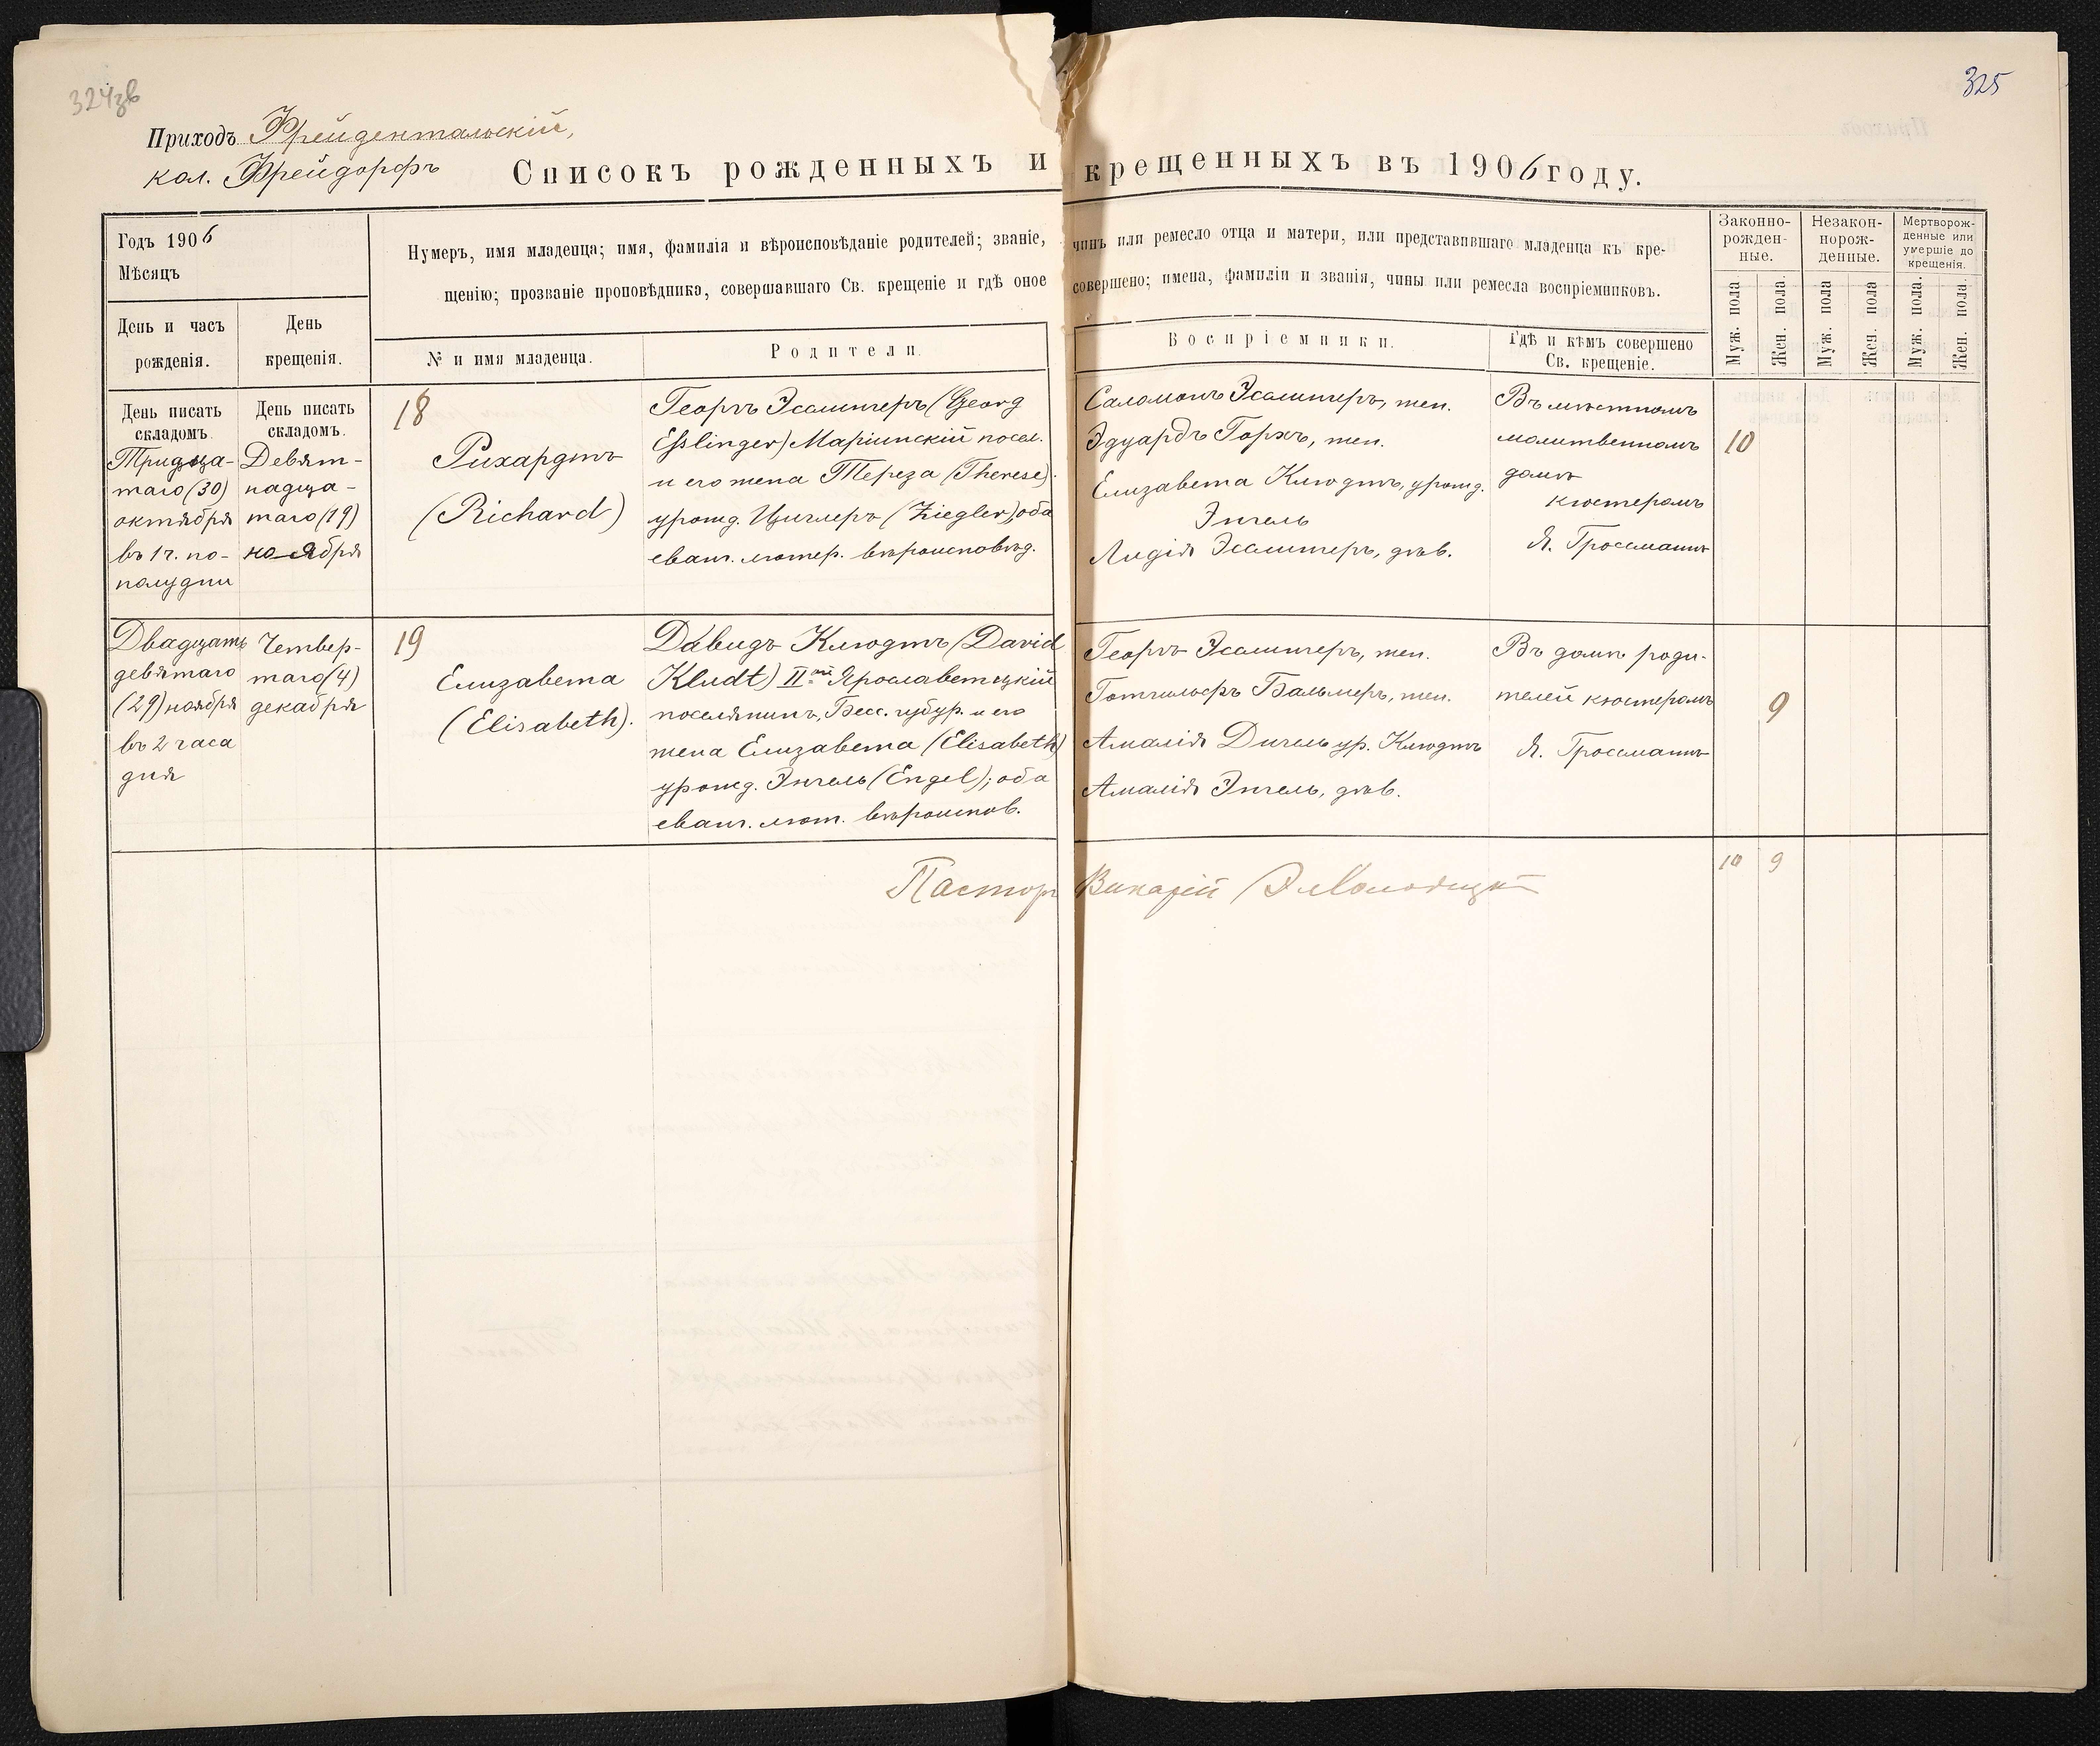 324зв
325
Приходъ Фрейдентальскій,
кол. Фрейдорфъ
Списокъ рожденныхъ и крещенныхъ въ 1906 году.
Годъ 1906
Мѣсяцъ
День и часъ
рожденія.
День
крещенія.
Нумеръ, имя младенца; имя, фамилія и вѣроисповѣданіе родителей; званіе, чинъ или ремесло отца и матери, или представившаго младенца къ кре-
щенію; прозваніе проповѣдника, совершавшаго Св. крещеніе и гдѣ оное совершено; имена, фамиліи и званія, чины или ремесла воспріемниковъ.
№ и имя младенца.
Родители.
Воспріемники.
Гдѣ и кѣмъ совершено
Св. крещеніе.
Законно-
рожден-
ные.
Незакон-
норож-
денные.
Мертворож-
денные или
умершіе до
крещенія.
Муж. пола
Жен. пола.
Муж. пола
Жен. пола
Муж. пола.
Жен. пола.
День писать
складомъ.
Тридца-
таго (30)
октября
въ 1 ч. по-
полудни
День писать
складомъ.
Девят-
надца-
таго (19)
ноября
18
Рихардтъ
(Richard)
Георгъ Эсслингеръ (Georg
Esslinger) Маріинскій посел.
и его жена Тереза (Therese)
урожд. Циглеръ (Ziegler), оба
еванг. лютер. вѣроисповѣд.
Саломонъ Эсслингеръ, жен.
Эдуардъ Горхъ, жен.
Елизавета Клюдтъ, урожд.
Энгель
Лидія Эсслингеръ, дѣв.
Въ мѣстномъ
молитвенномъ
домѣ
кюстеромъ
Я. Гроссманъ
10
Двадцать
девятаго
(29) ноября
въ 2 часа
дня
Четвер-
таго (4)
декабря
19
Елизавета
(Elisabeth).
Давидъ Клюдтъ (David
Kludt) IIой Ярославетцкій
поселянинъ, Бесс. губер. и его
жена Елизавета (Elisabeth)
урожд. Энгель (Engel); оба
еванг. лют. вѣроиспов.
Георгъ Эсслингеръ, жен.
Готтильфъ Бальмеръ, жен.
Амалія Дигель ур. Клюдтъ
Амалія Энгель, дѣв.
Въ домѣ роди-
телей кюстеромъ
Я. Гроссманъ
9
10 9
Пасторъ Викарій